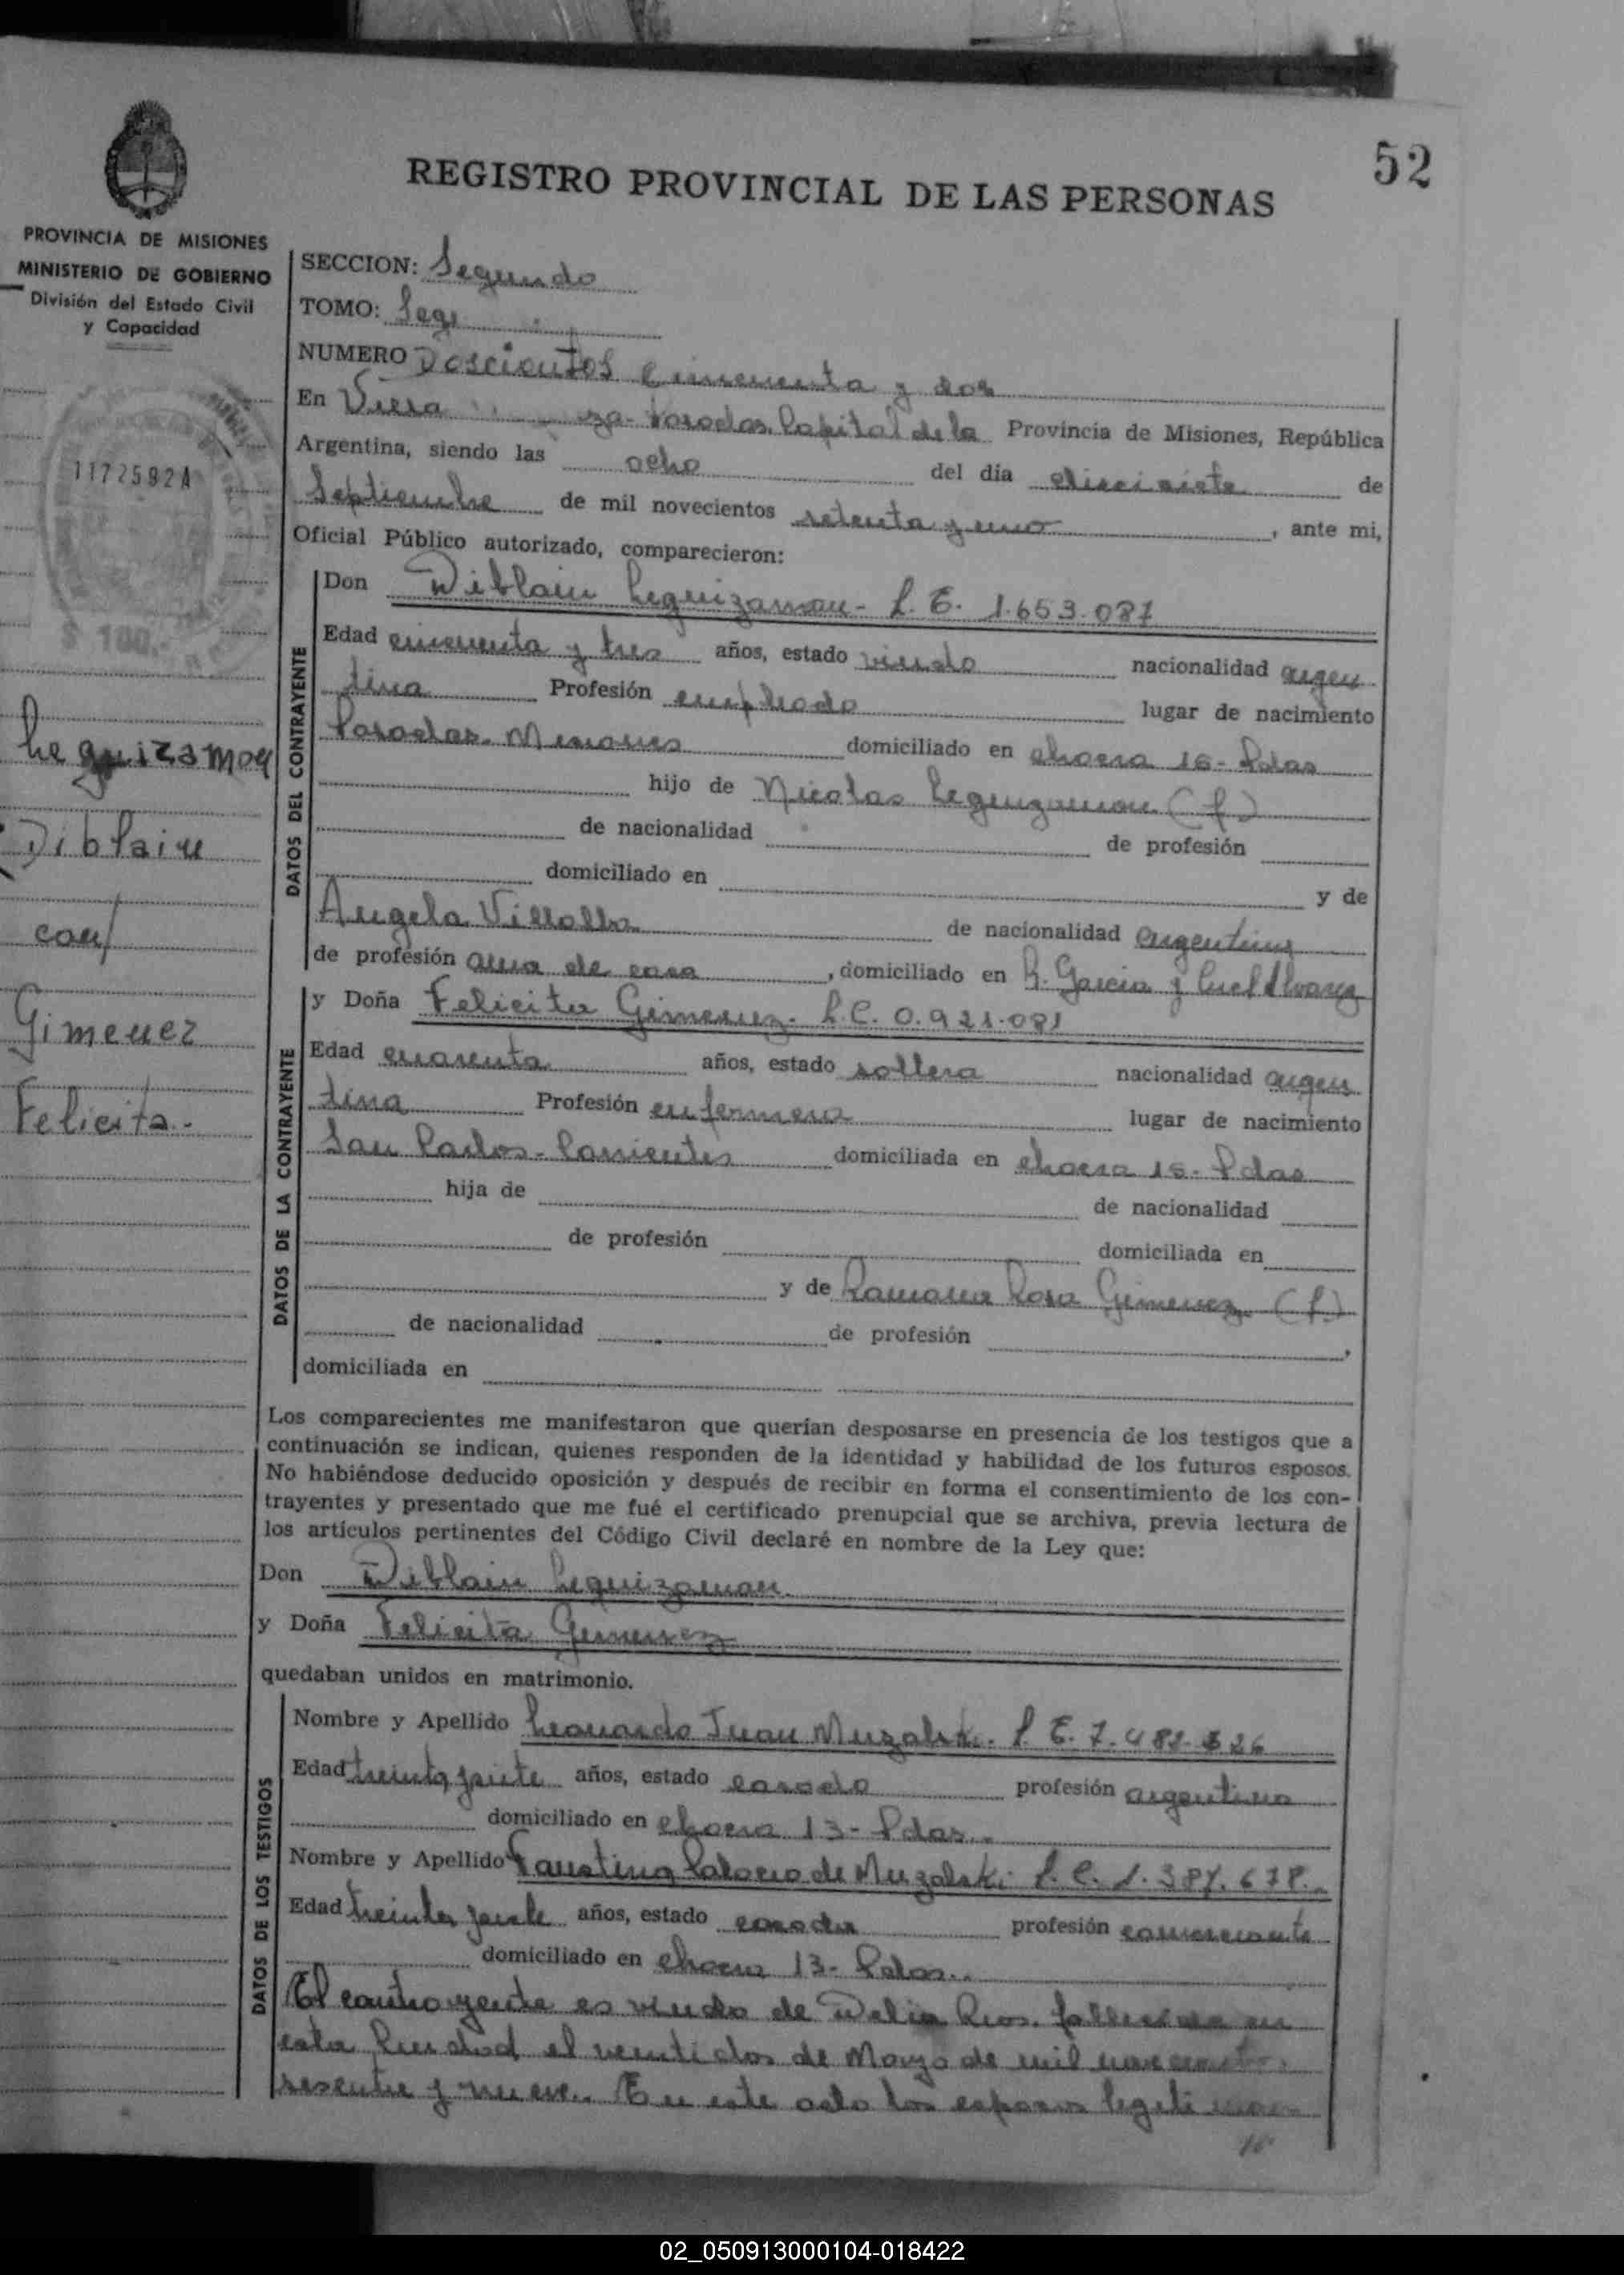 52
REGISTRO PROVINCIAL DE LAS PERSONAS
PROVINCIA DE MISIONES
MINISTERIO DE GOBIERNO
División del Estado Civil
y Capacidad
1172592A
$ 100.-
Leguizamon
Diblain
con/
Gimenez
Felicita.-
SECCION: Segundo
TOMO: Seg
NUMERO Doscientos cincuenta y dos
En Villa za- Posadas. Capital de la Provincia de Misiones, República
Argentina, siendo las ocho del día diecisiete de
Septiembre de mil novecientos setenta y uno, ante mi,
Oficial Público autorizado, comparecieron:
DATOS DEL CONTRAYENTE
Don Diblain Leguizamon- L. E. 1.653.087
Edad cincuenta y tres años, estado viudo nacionalidad argen
tina Profesión empleado lugar de nacimiento
Posadas- Misiones domiciliado en chacra 16- Pdas
hijo de Nicolas Leguizamon (f)
de nacionalidad de profesión
domiciliado en y de
Angela Villalba de nacionalidad argentina
de profesión ama de casa, domiciliado en R. Garcia y
DATOS DE LA CONTRAYENTE
y Doña Felicita Gimenez- L.C. 0.921.081
Edad cuarenta años, estado soltera nacionalidad argen
tina Profesión enfermera lugar de nacimiento
San Carlos- Corrientes domiciliada en chacra 16- Pdas
hija de de nacionalidad
de profesión domiciliada en
y de Ramona Rosa Gimenez (f)
de nacionalidad de profesión ,
domiciliada en
Los comparecientes me manifestaron que querían desposarse en presencia de los testigos que a
continuación se indican, quienes responden de la identidad y habilidad de los futuros esposos.
No habiéndose deducido oposición y después de recibir en forma el consentimiento de los con-
trayentes y presentado que me fué el certificado prenupcial que se archiva, previa lectura de
los artículos pertinentes del Código Civil declaré en nombre de la Ley que:
Don Diblain Leguizamon
y Doña Felicita Gimenez
quedaban unidos en matrimonio.
DATOS DE LOS TESTIGOS
Nombre y Apellido Leonardo Juan Muzalski. L. E. 7.482.326
Edad treinta y siete años, estado casado profesión argentino
domiciliado en chacra 13- Pdas.
Nombre y Apellido Faustina de Muzalski- L. C. 1.387.678.
Edad treinta y años, estado casada profesión comerciante
domiciliado en chacra 13- Pdas..
El contrayente es viudo de Delia Rios. fallecida en
esta Ciudad el veintidos de Marzo de mil novecientos
sesenta y nueve. En este acto los esposos legitiman
02_050913000104-018422